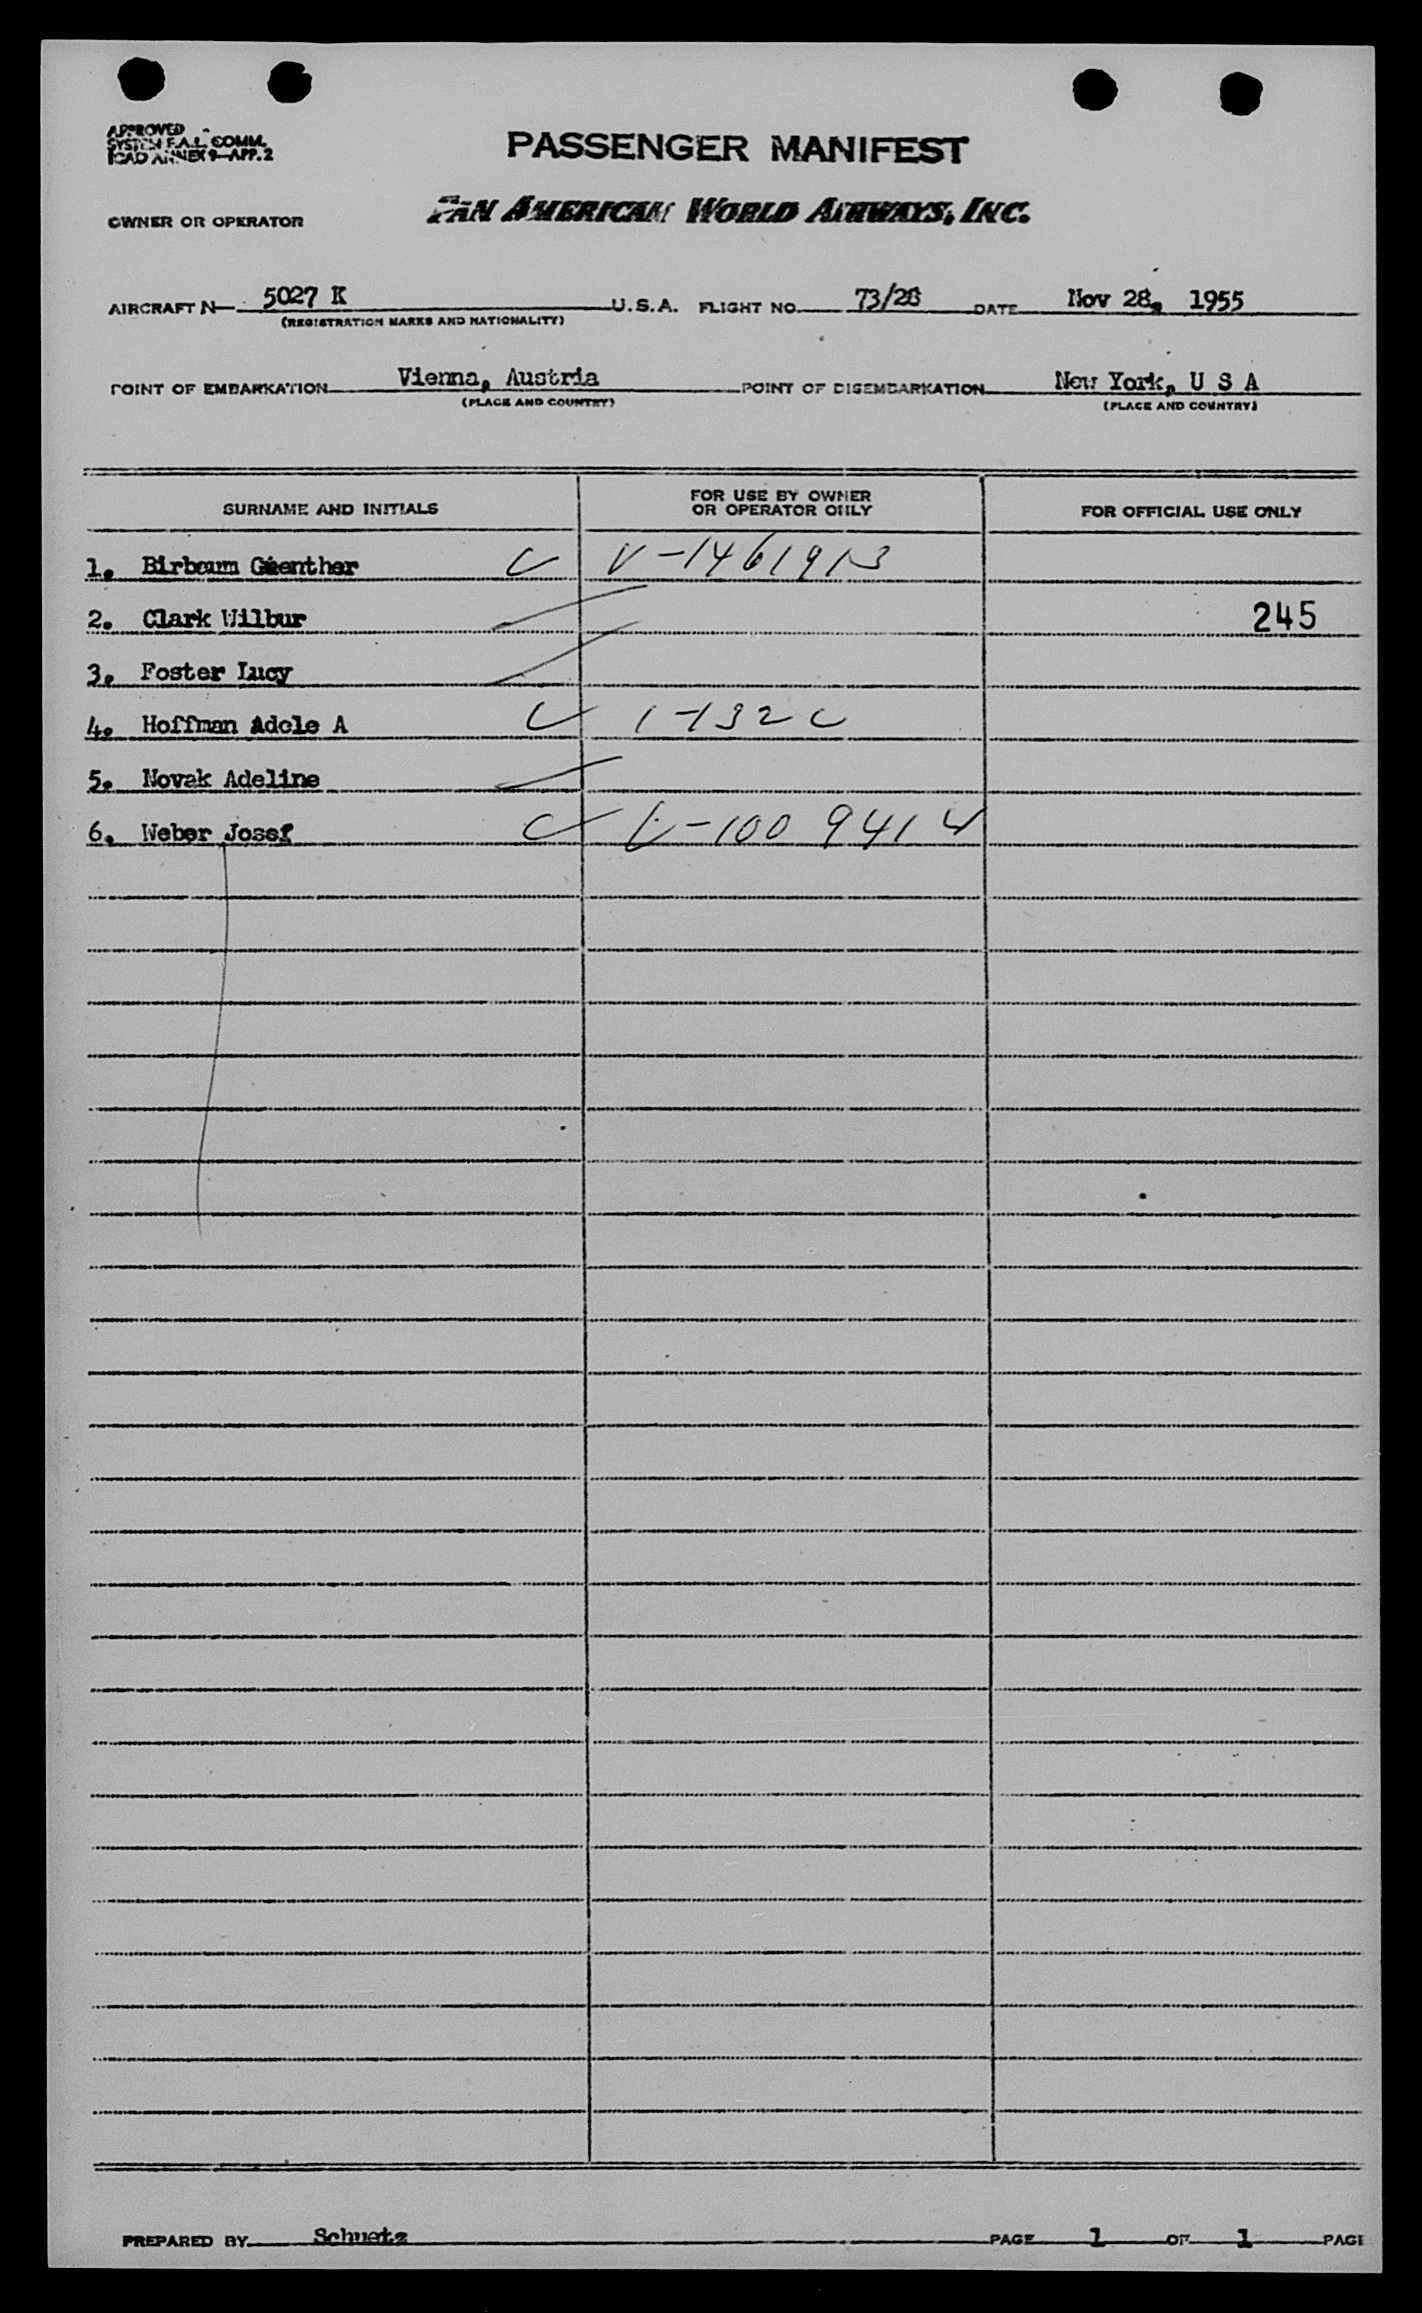 APPROVED
SYSTEM F.A.L. COMM.
ICAO ANNEX 9—APP. 2
PASSENGER MANIFEST
OWNER OR OPERATOR PAN AMERICAN WORLD AIRWAYS, INC.
AIRCRAFT N— 5027 K U.S.A. FLIGHT NO. 73/28 DATE Nov 28, 1955
(REGISTRATION MARKS AND NATIONALITY)
POINT OF EMBARKATION Vienna, Austria POINT OF DISEMBARKATION New York, U S A
(PLACE AND COUNTRY) (PLACE AND COUNTRY)
SURNAME AND INITIALS FOR USE BY OWNER OR OPERATOR ONLY FOR OFFICIAL USE ONLY
1. Birbaum Guenther V-1461913
2. Clark Wilbur 245
3. Foster Lucy
4. Hoffman Adele A
5. Novak Adeline
6. Weber Josef V-1009414
PREPARED BY Schuetz PAGE 1 OF 1 PAGE